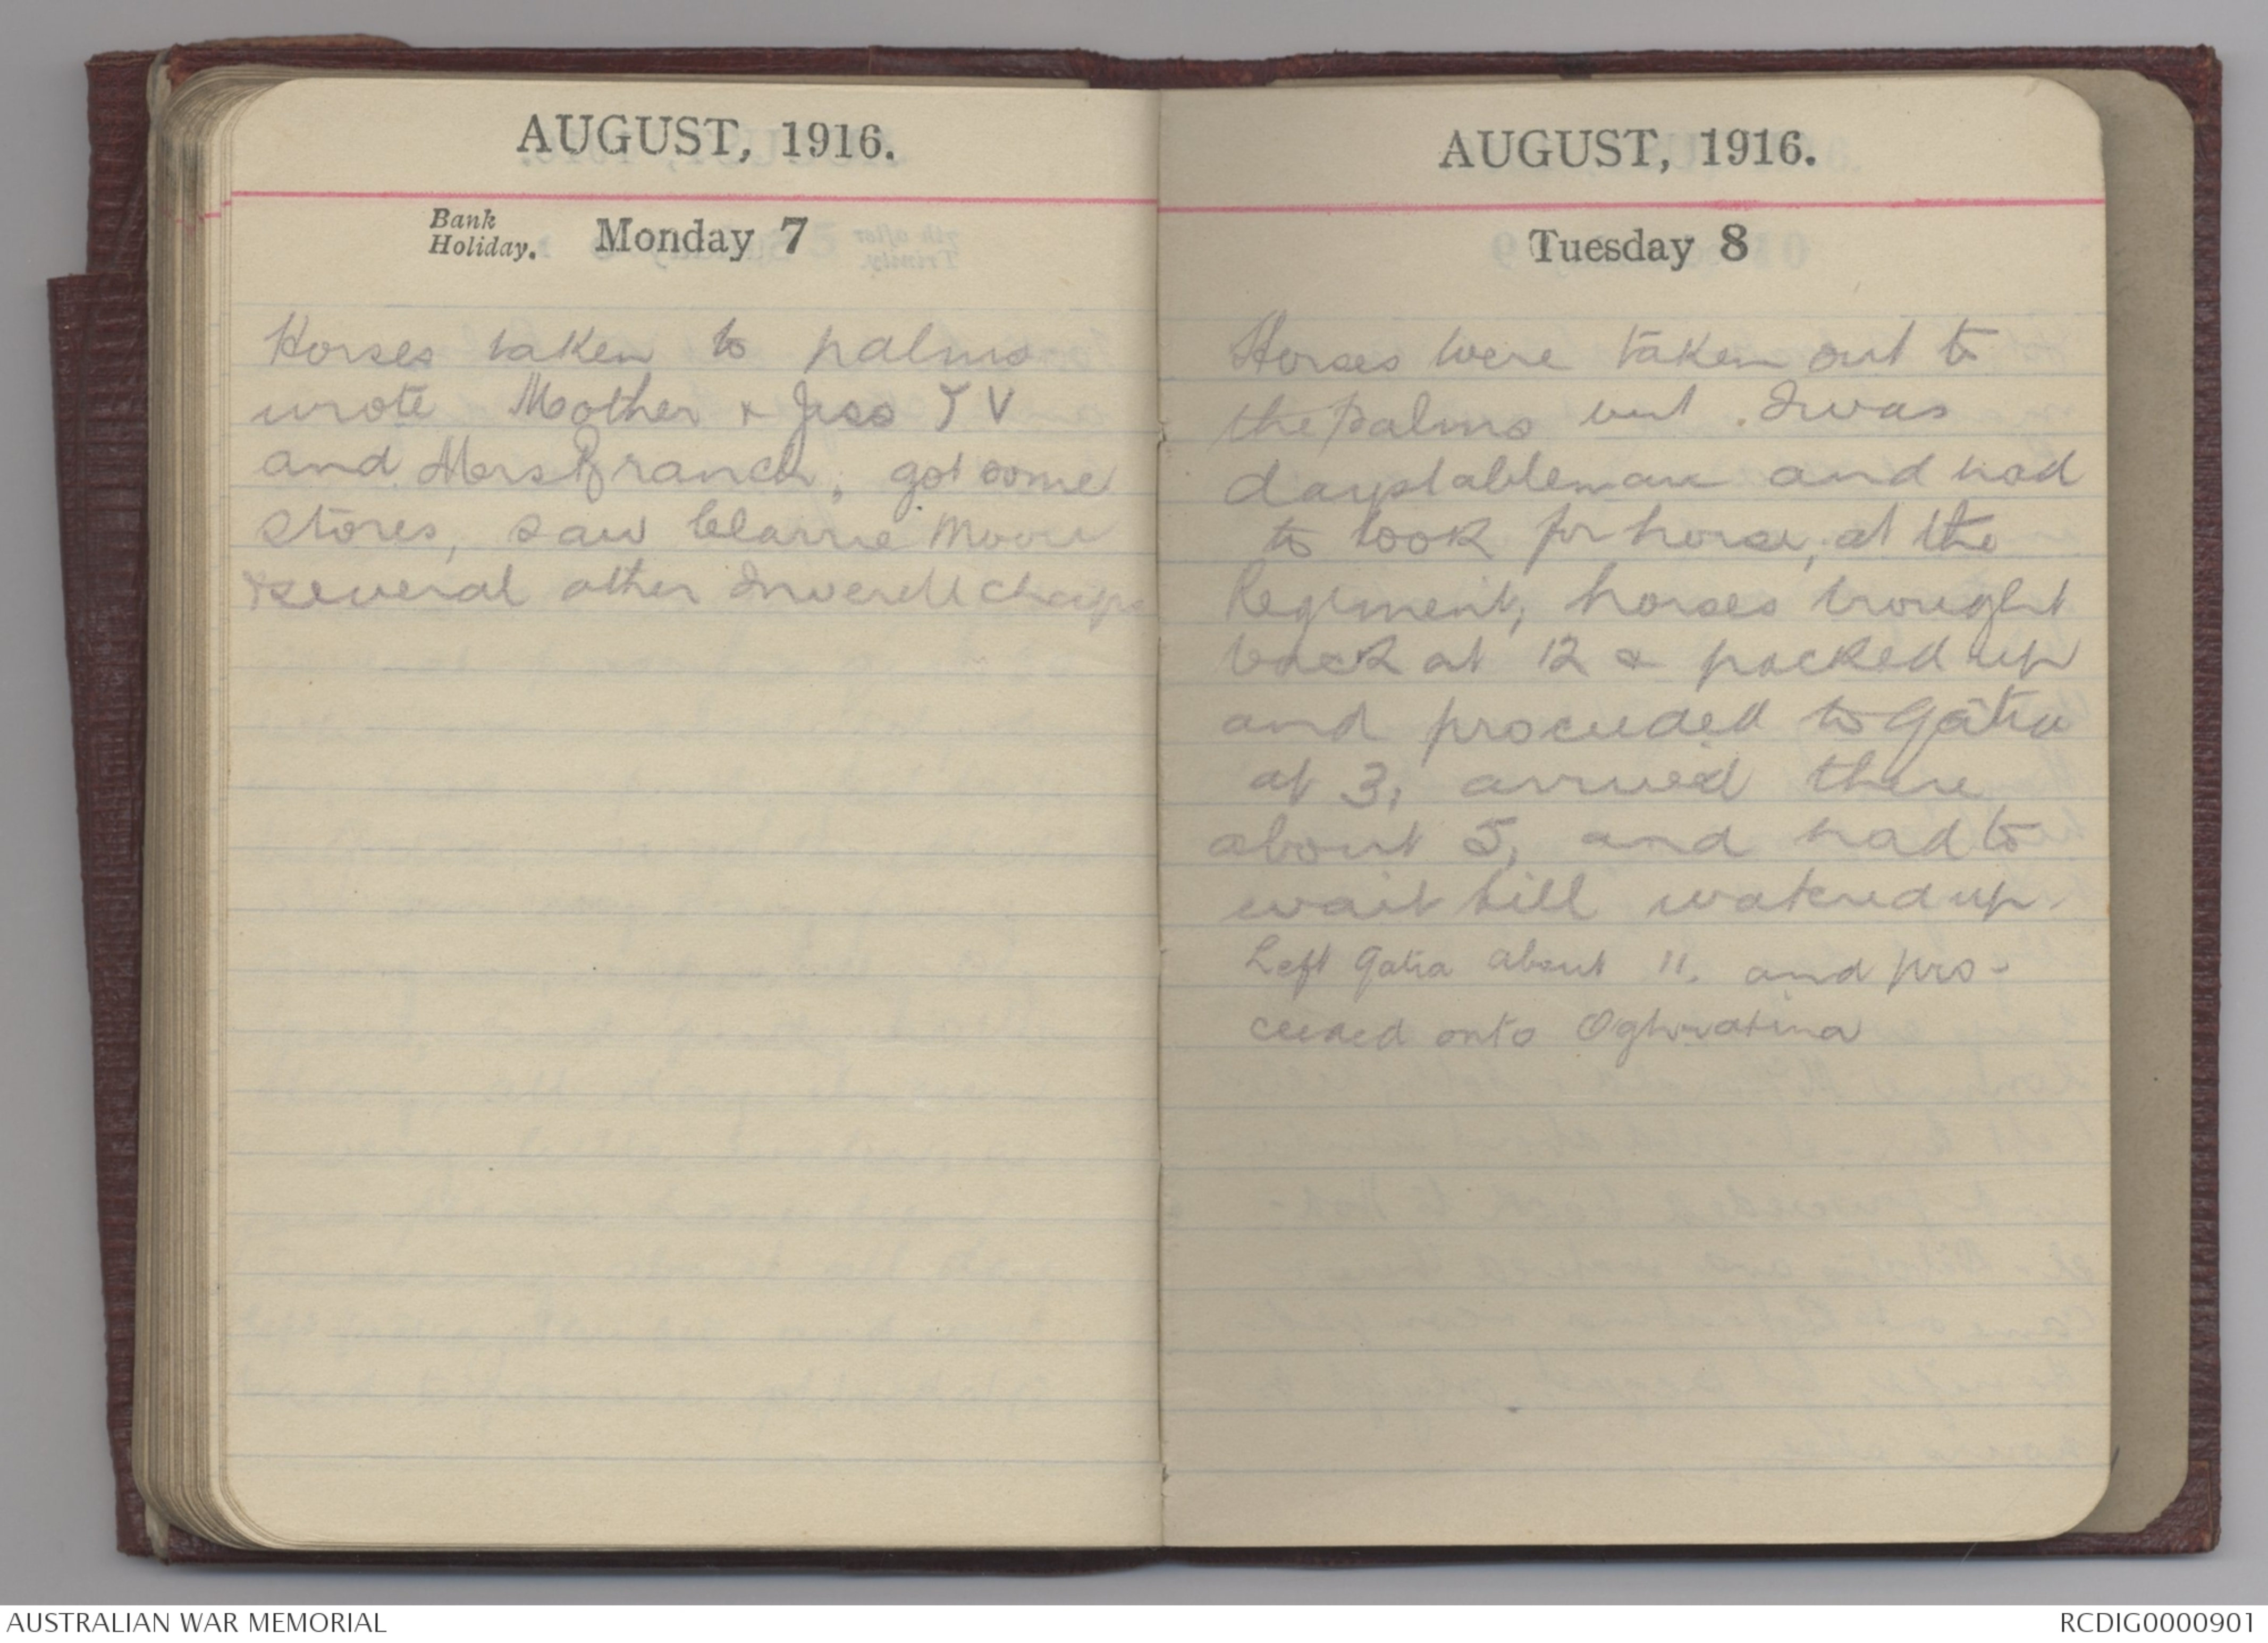 AUGUST, 1916.
Bank
Holiday. Monday 7
Horses taken to palms
wrote Mother & Jess T V
and Mrs Branch, got some
stores, saw Clarrie Moore
& several other Inverell chaps
AUGUST, 1916.
Tuesday 8
Horses were taken out to
the palms but I was
daystableman and had
to look for horse, at the
Regiment, horses brought
back at 12 & packed up
and proceeded to Gatia
at 3, arrived there
about 5, and had to
wait till watered up.
Left Gatia about 11. and pro-
ceeded onto Oghwatina
AUSTRALIAN WAR MEMORIAL
RCDIG0000901